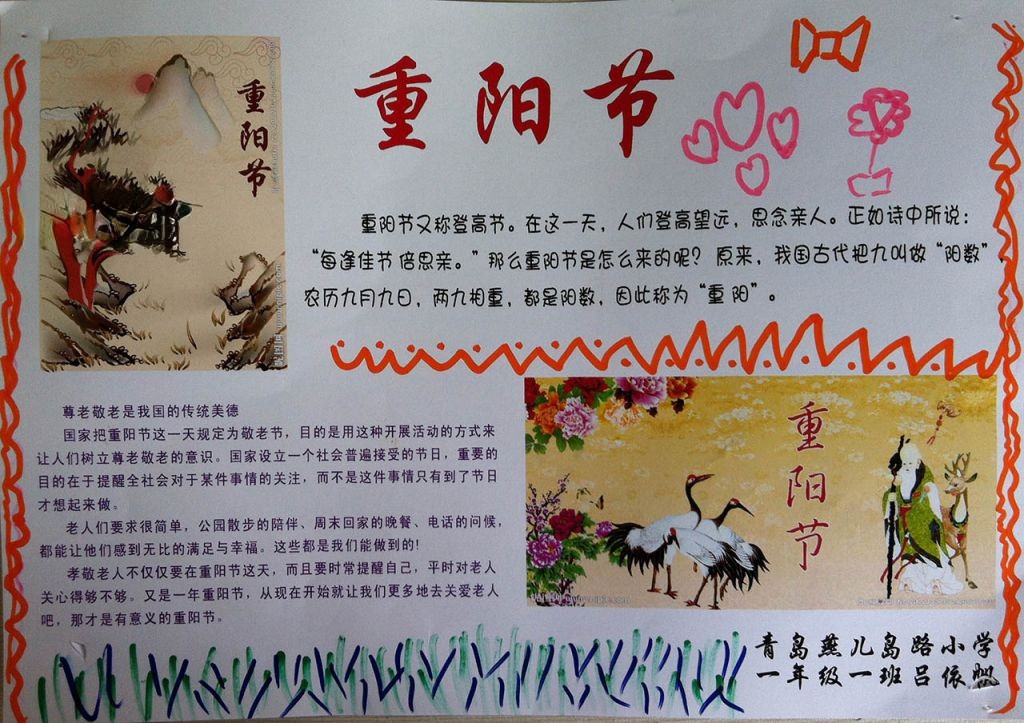 重阳节
重阳节
重阳节又称登高节。在这一天，人们登高望远，思念亲人。正如诗中所说：
“每逢佳节倍思亲。”那么重阳节是怎么来的呢？原来，我国古代把九叫做“阳数”，
农历九月九日，两九相重，都是阳数，因此称为“重阳”。
尊老敬老是我国的传统美德
国家把重阳节这一天规定为敬老节，目的是用这种开展活动的方式来
让人们树立尊老敬老的意识。国家设立一个社会普遍接受的节日，重要的
目的在于提醒全社会对于某件事情的关注，而不是这件事情只有到了节日
才想起来做。
老人们要求很简单，公园散步的陪伴、周末回家的晚餐、电话的问候，
都能让他们感到无比的满足与幸福。这些都是我们能做到的！
孝敬老人不仅仅要在重阳节这天，而且要时常提醒自己，平时对老人
关心得够不够。又是一年重阳节，从现在开始就让我们更多地去关爱老人
吧，那才是有意义的重阳节。
重阳节
青岛燕儿岛路小学
一年级一班吕依